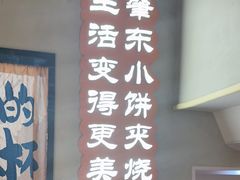 肇东小饼夹烧
生活变得更美
的杯